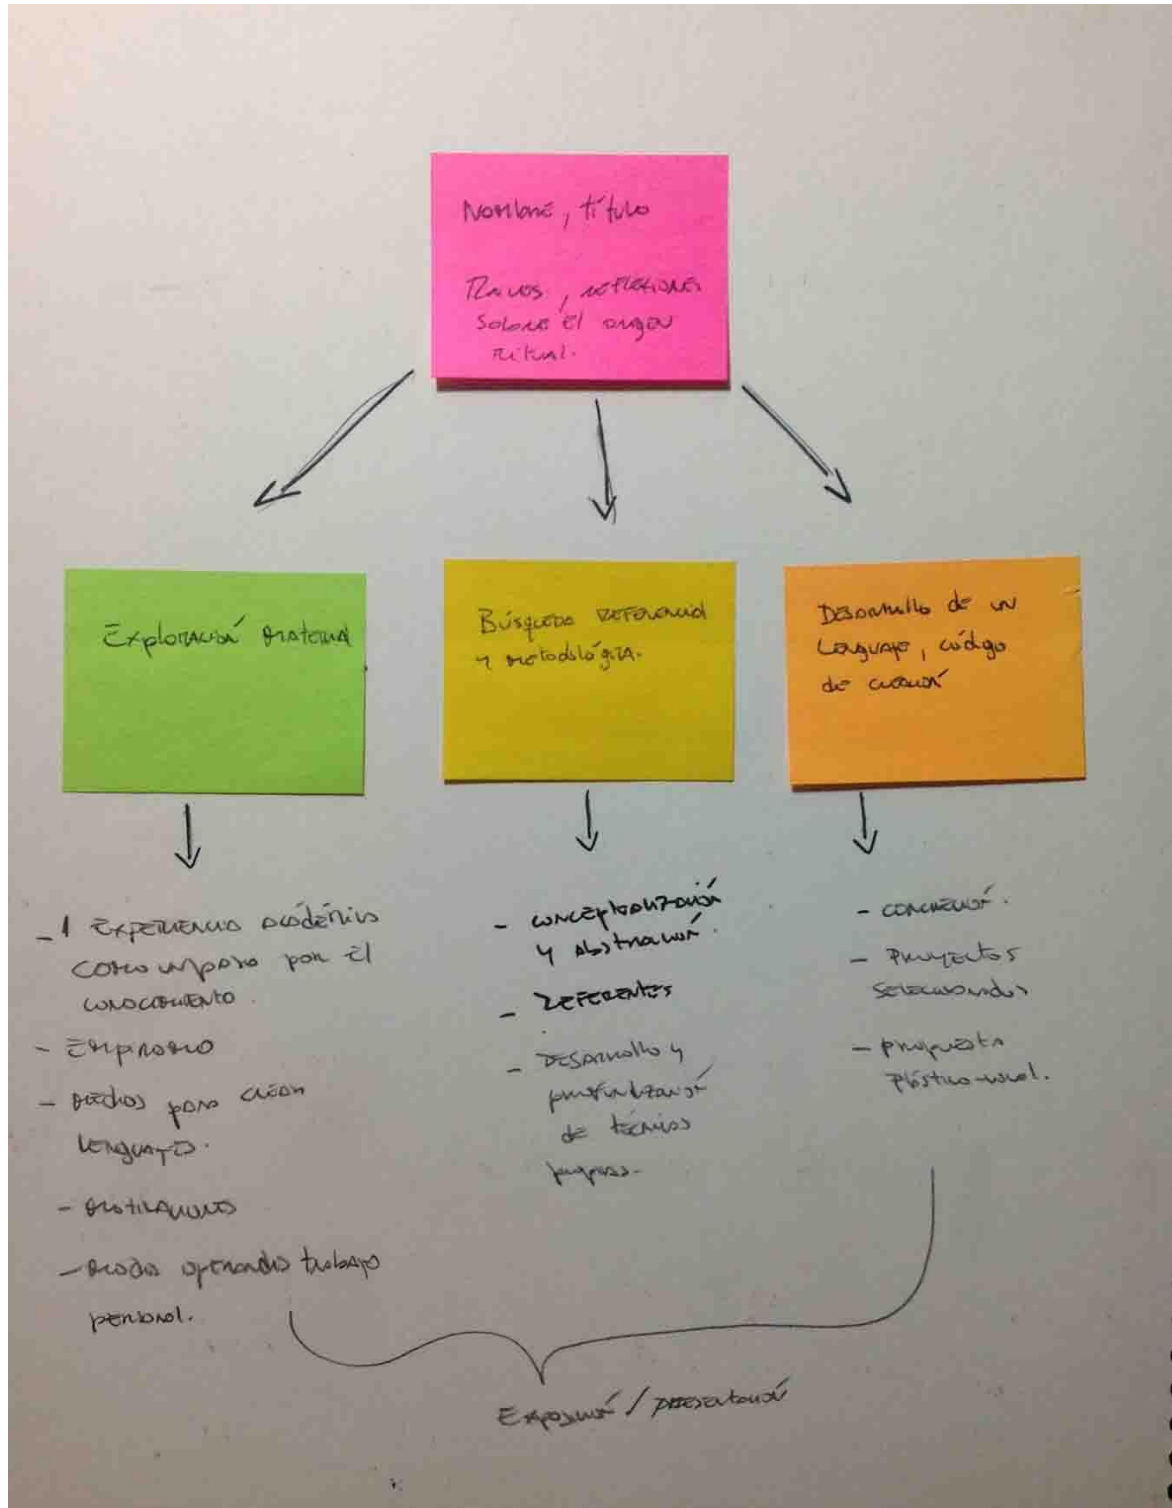 Nombre, título
Trazos, reflexiones
sobre el origen
ritual.
Exploración material
Búsqueda referencial
y metodológica.
Desarrollo de un
Lenguaje, código
de creación
- 1 Experiencia académica
como un paso por el
conocimiento.
- Empirismo
- Medios para crear
lenguajes.
-
- Modos operandis trabajo
personal.
- conceptualización
y abstracción.
- Referentes
- Desarrollo y
profundización
de técnicas
propias.
- concreción.
- Proyectos
seleccionados
- propuesta
plástico-visual.
Exposición / presentación